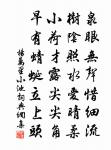 泉眼無聲惜細流
樹陰照水愛晴柔
小荷才露尖尖角
早有蜻蜓立上頭
萬里小池